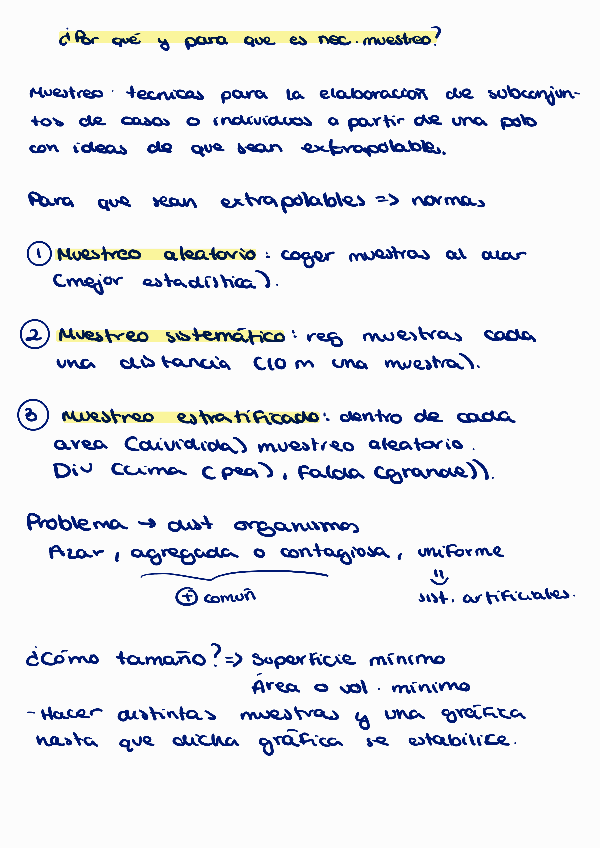 ¿Por qué y para que es nec. muestreo?
Muestreo: tecnicas para la elaboración de subconjun-
tos de casos o individuos a partir de una pob
con ideas de que sean extrapolables.
Para que sean extrapolables => normas
1 Muestreo aleatorio: coger muestras al azar
(mejor estadística).
2 Muestreo sistemático: reg muestras cada
una distancia (10 m una muestra).
3 Muestreo estratificado: dentro de cada
area (dividida) muestreo aleatorio.
Div (cima (peq), falda (grande)).
Problema → dist organismos
Azar, agregada o contagiosa, uniforme
+ común sist. artificiales.
¿Cómo tamaño? => Superficie mínimo
Área o vol. mínimo
- Hacer distintas muestras y una gráfica
hasta que dicha gráfica se estabilice.